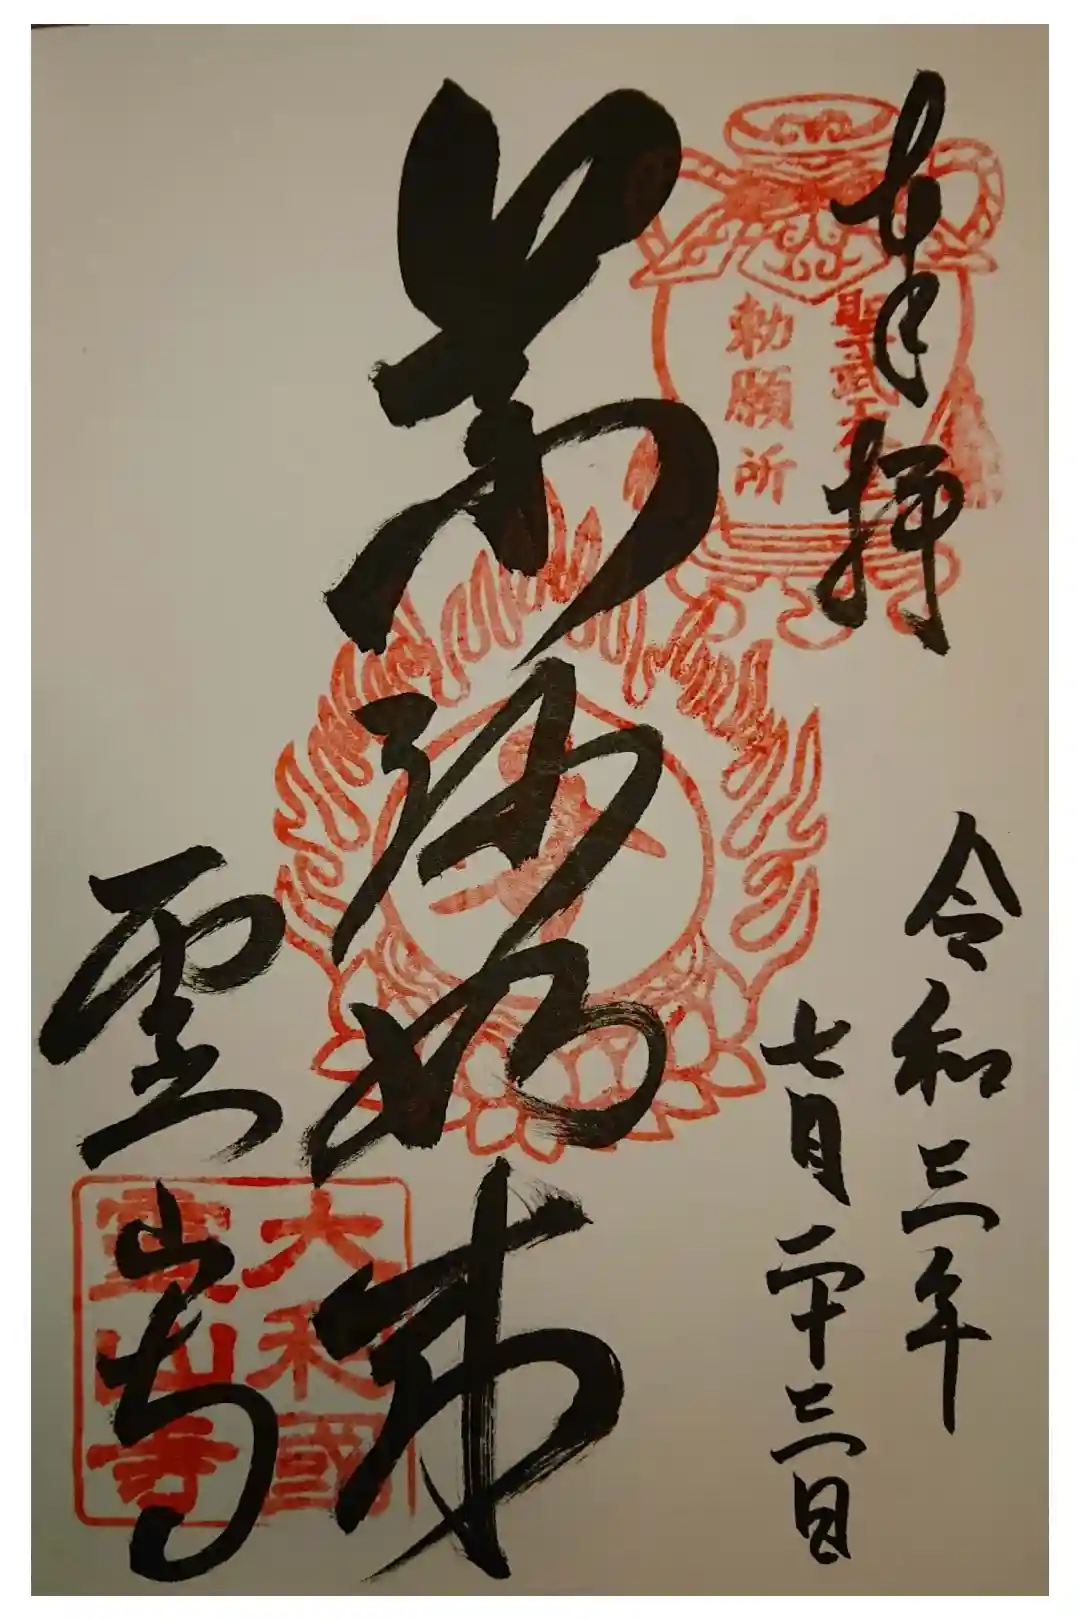 奉拝
聖武天皇
勅願所
令和三年
七月二十三日
薬師如来
霊山寺
大和國
霊山寺